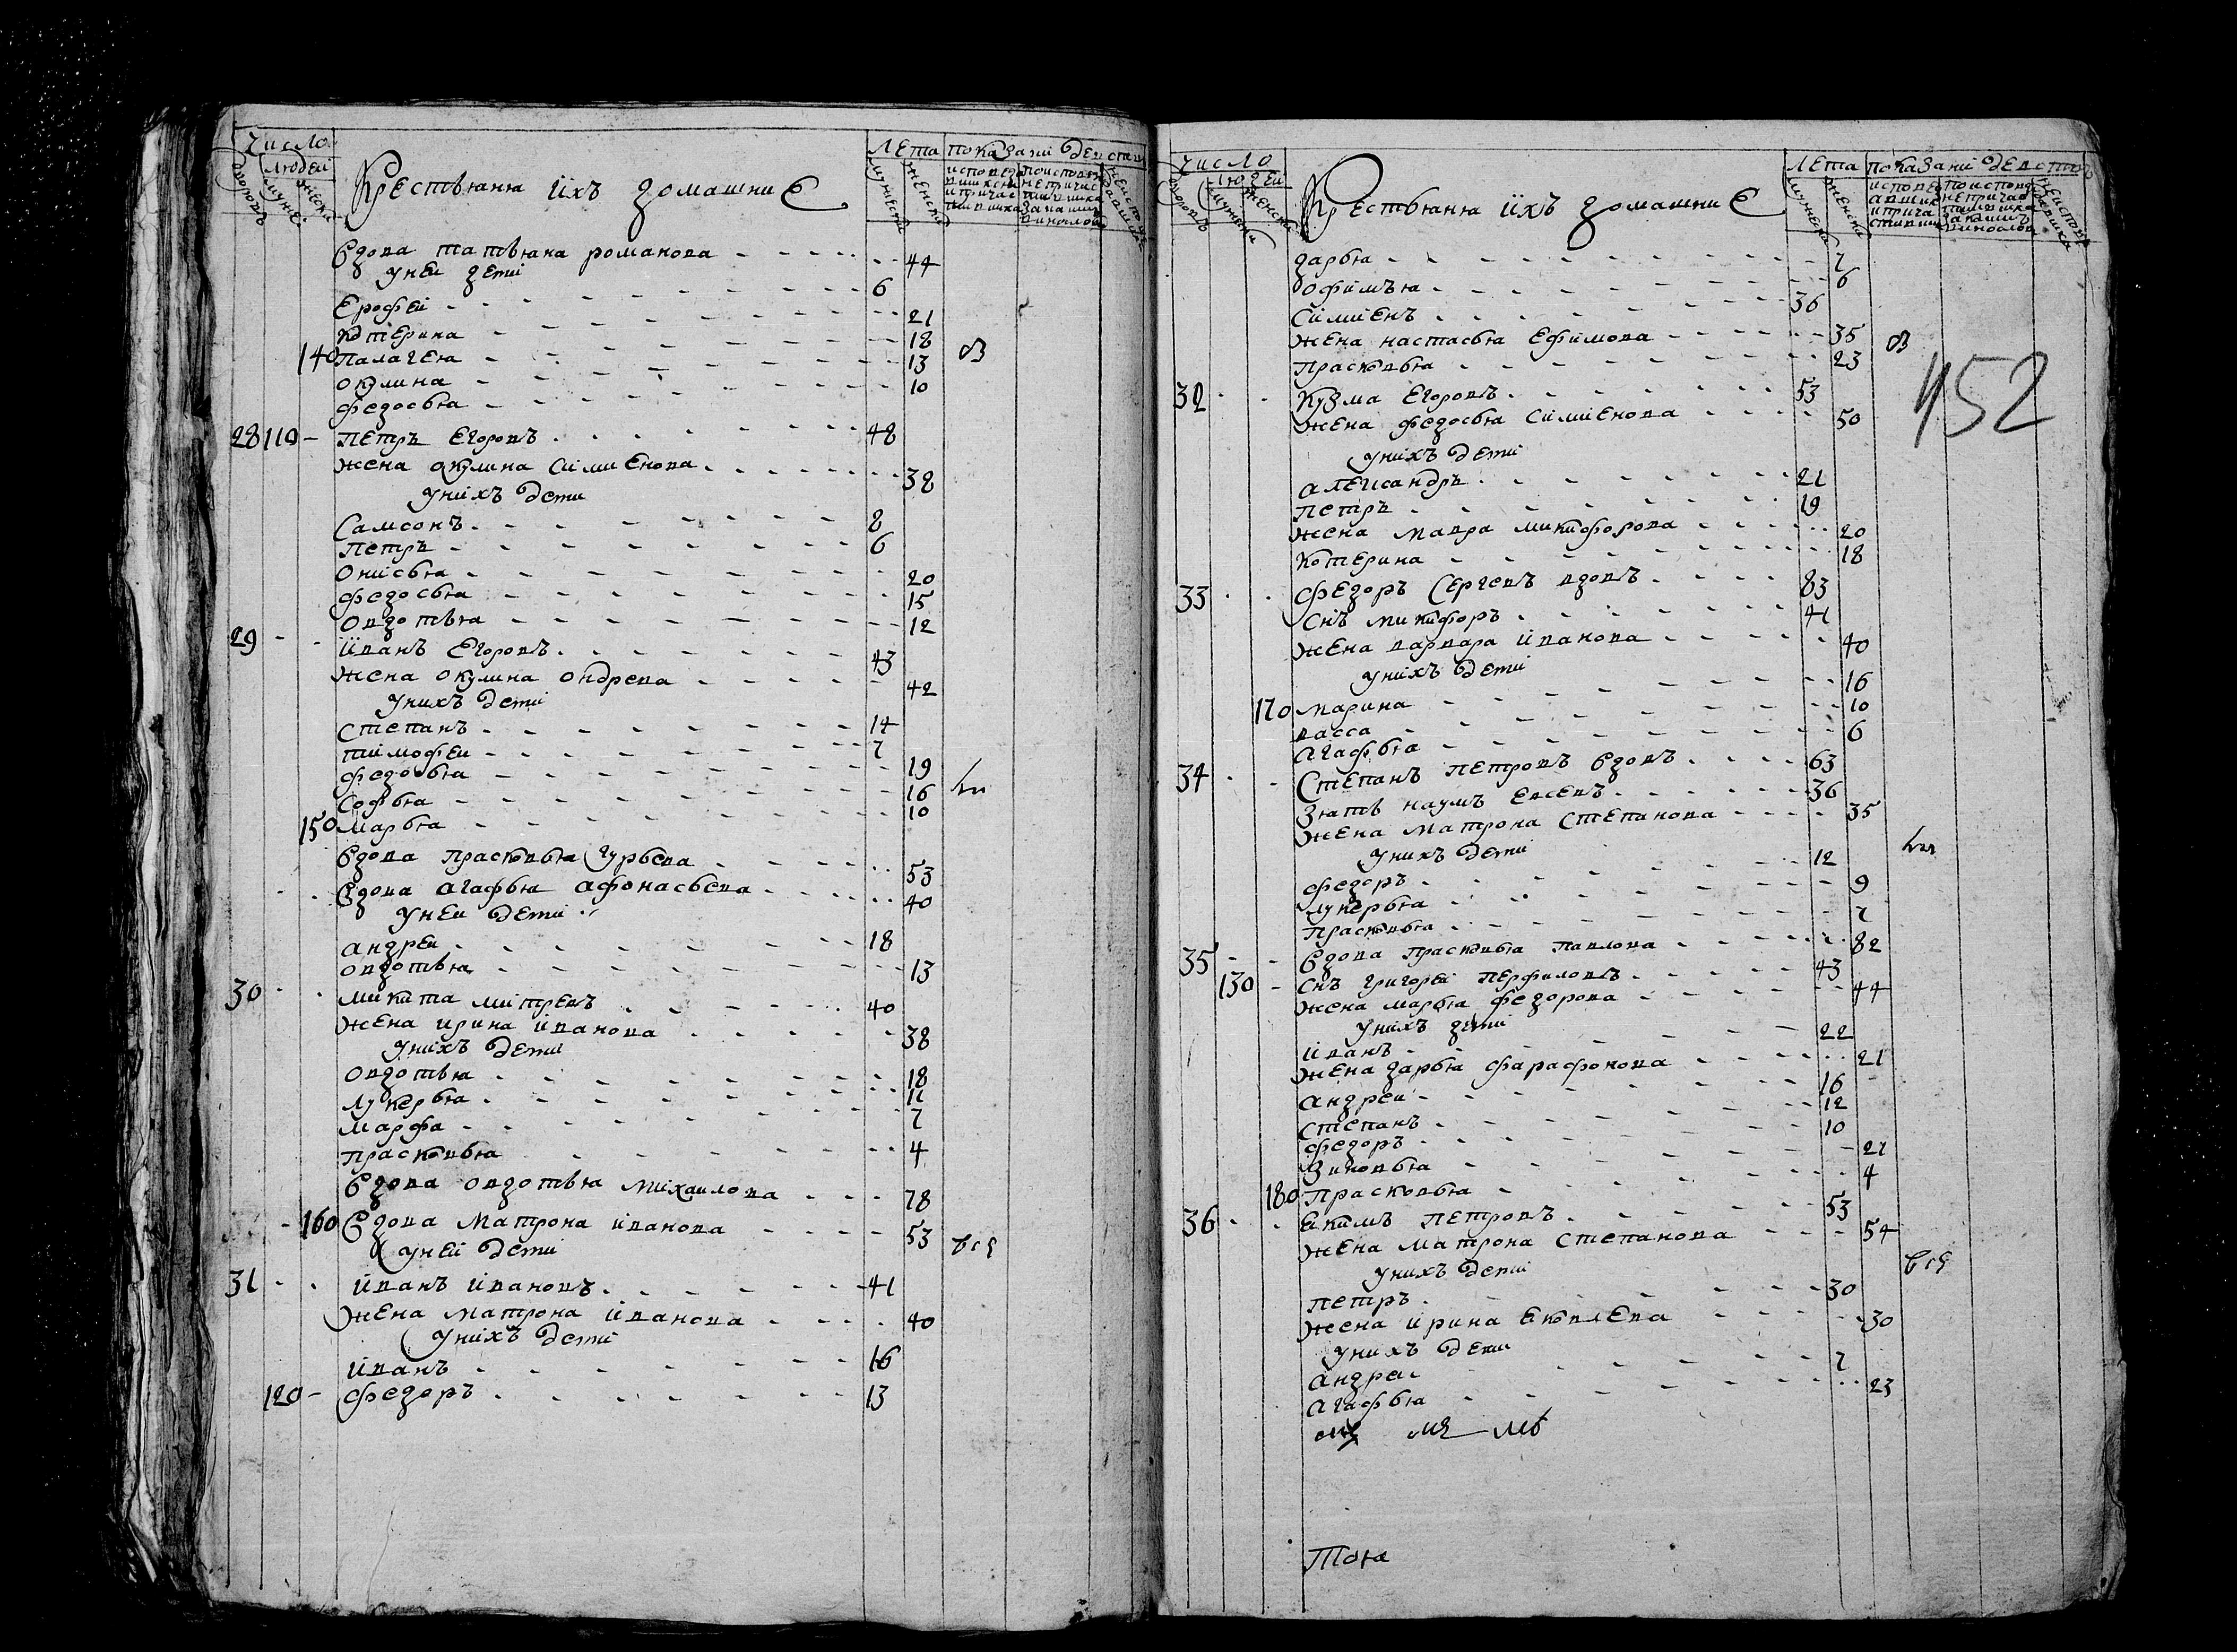 Число
Лета показани действ
людей
дворовъ
мужес
женска
Крестьяня iихъ домашние
мужеска
женска
вдова татьяна романова 44
у неи дети
Ерофеи 6
котерина 21
140 Палагея 18
окулина 13
федосья 10
28 110 Петръ Егоровъ 48
жена окулина Симиенова 38
у нихъ дети
Самсонъ 8
Петръ 6
Онисья 20
федосья 15
овдотья 12
29 iванъ Егоровъ 43
жена окулина ондрева 42
у нихъ дети
Степанъ 14
тимофеи 7
федосья 19
Софья 16
150 марья 10
вдова прасковья гурьева 53
вдова агафья афонасьева 40
у неи дети
андреи 18
овдотья 13
30 микита митревъ 40
жена ирина iванова 38
у нихъ дети
овдотья 18
лукерья 11
марфа 7
прасковья 4
вдова овдотья михаилова 78
160 вдова матрона iванова 53
у неи дети
31 iванъ iвановъ 41
жена матрона iванова 40
у нихъ дети
iванъ 16
120 федоръ 13
вся
Число
Лета показани действ
людеи
дворовъ
мужеска
женска
Крестьяня iихъ домашние
мужеска
женска
дарья 7
офимья 6
Симиенъ 36
жена настасья Ефимова 35
прасковья 23
452
32 Кузма Егоровъ 53
жена федосья Симиенова 50
у нихъ дети
александръ 21
петръ 19
жена мавра микифорова 20
котерина 18
33 федоръ Сергеевъ вдовъ 83
снъ микифоръ 41
жена варвара iванова 40
у нихъ дети
170 марина 16
васса 10
агафья 6
34 Степанъ петровъ вдовъ 63
зять наумъ Евсевъ 36
жена матрона степанова 35
у нихъ дети
федоръ 12
лукерья 9
прасковья 7
35 вдова прасковья павлова 82
130 снъ григореи перфиловъ 43
жена марья федорова 44
у нихъ дети
iванъ 22
жена дарья фарафонова 21
андреи 16
степанъ 12
федоръ 10
Зиновья 21
180 прасковья 4
36 Екимъ петровъ 53
жена матрона степанова 54
у нихъ дети
петръ 30
жена ирина Ековлева 30
у нихъ дети
андреи 7
агафья 23
вся